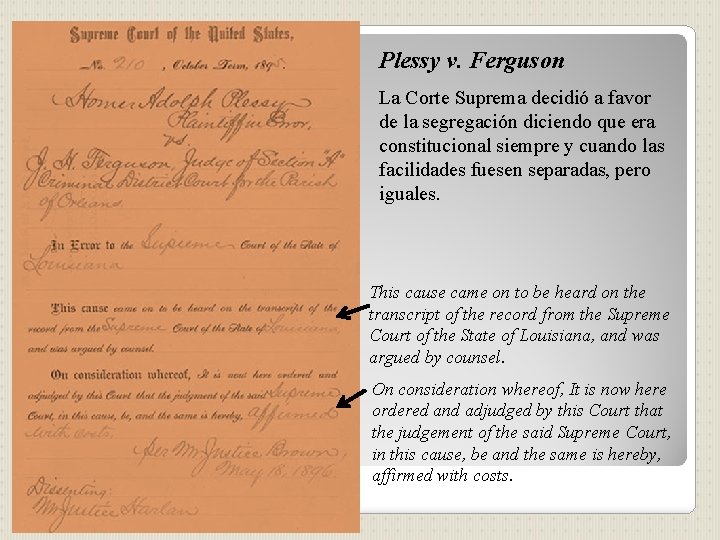 Supreme Court of the United States,
No. 210, October Term, 1895.
Homer Adolph Plessy
Plaintiff in Error,
vs.
J. H. Ferguson, Judge of Section "A"
Criminal District Court for the Parish
of Orleans.
In Error to the Supreme Court of the State of
Louisiana
This cause came on to be heard on the transcript of the
record from the Supreme Court of the State of Louisiana,
and was argued by counsel.
On consideration whereof, It is now here ordered and
adjudged by this Court that the judgment of the said Supreme
Court, in this cause, be, and the same is hereby, affirmed
with costs.
Per Mr. Justice Brown,
May 18, 1896.
Dissenting:
Mr. Justice Harlan
Plessy v. Ferguson
La Corte Suprema decidió a favor
de la segregación diciendo que era
constitucional siempre y cuando las
facilidades fuesen separadas, pero
iguales.
This cause came on to be heard on the
transcript of the record from the Supreme
Court of the State of Louisiana, and was
argued by counsel.
On consideration whereof, It is now here
ordered and adjudged by this Court that
the judgement of the said Supreme Court,
in this cause, be and the same is hereby,
affirmed with costs.